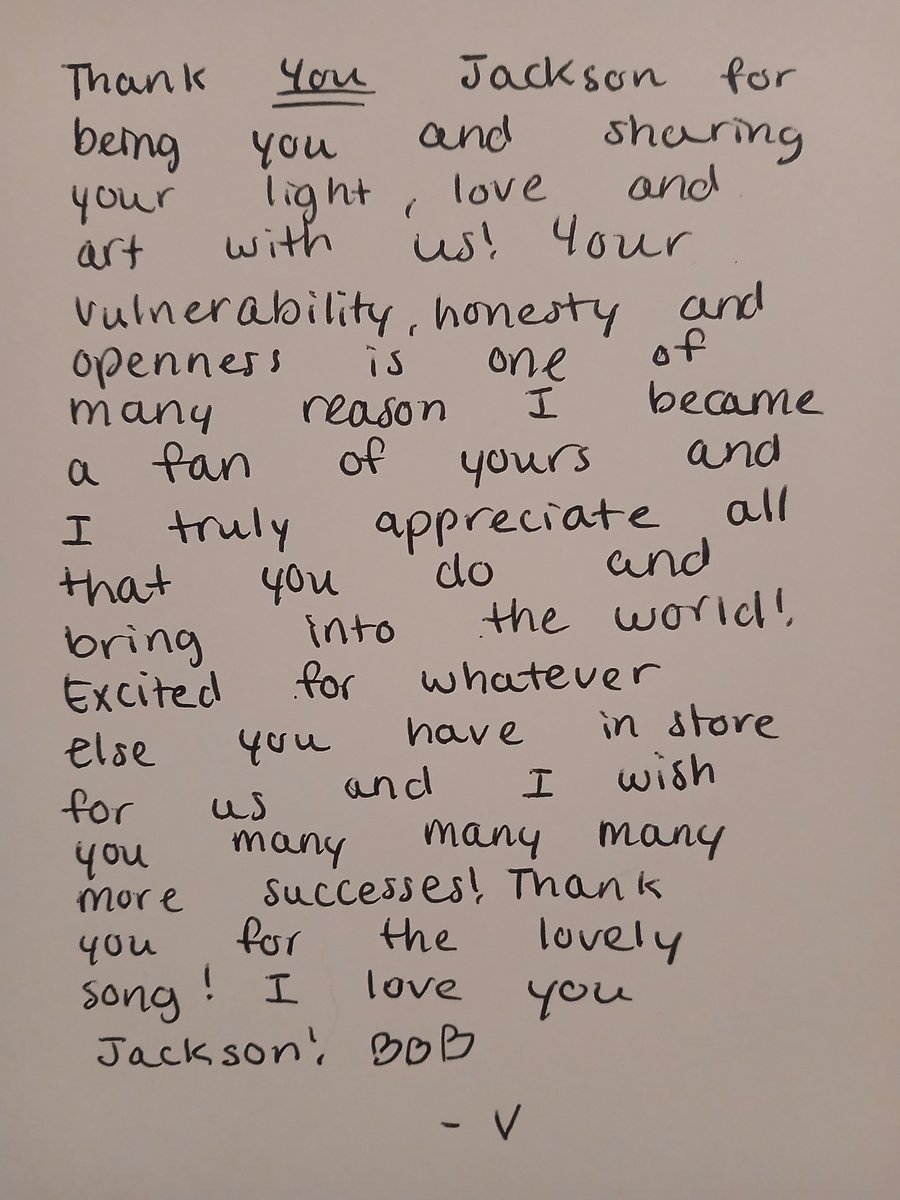 Thank You Jackson for
being you and sharing
your light, love and
art with us! Your
vulnerability, honesty and
openness is one of
many reason I became
a fan of yours and
I truly appreciate all
that you do and
bring into the world!
Excited for whatever
else you have in store
for us and I wish
you many many many
more successes! Thank
you for the lovely
song! I love you
Jackson! ♡♡♡
- V